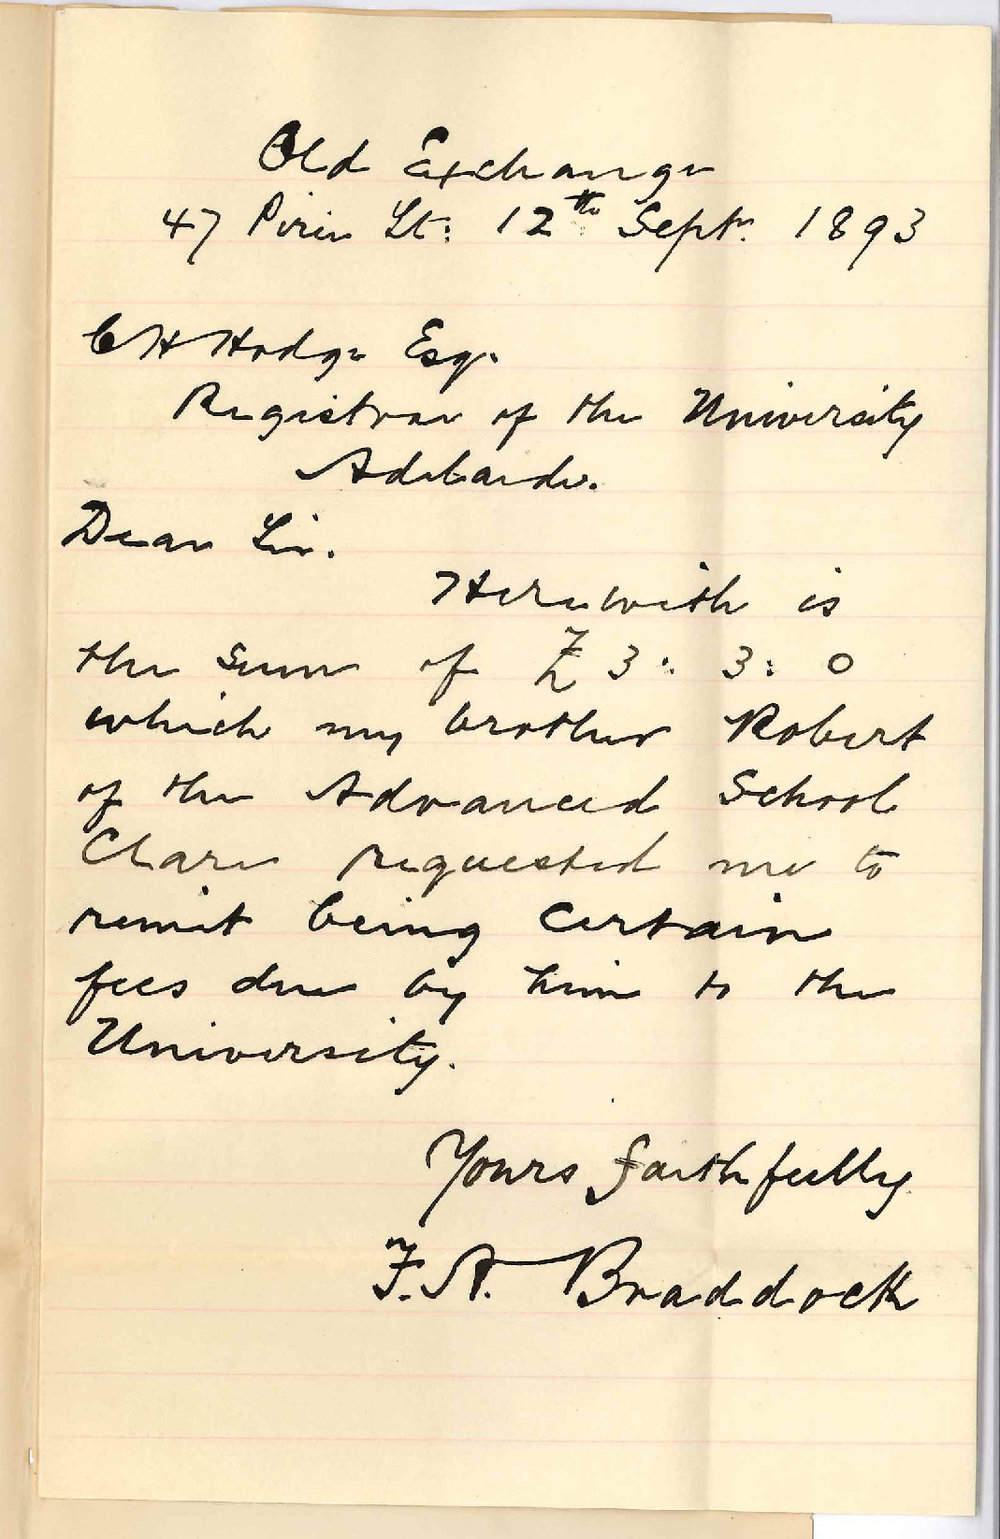 Old Exchange
47 Pirie St: 12th Septr. 1893
C H Hodge Esq.
Registrar of the University
Adelaide.
Dear Sir.
Herewith is
the sum of £3: 3: 0
which my brother Robert
of the Advanced School
Clare requested me to
remit being Certain
fees due by him to the
University.
Yours faithfully
F. A. Braddock